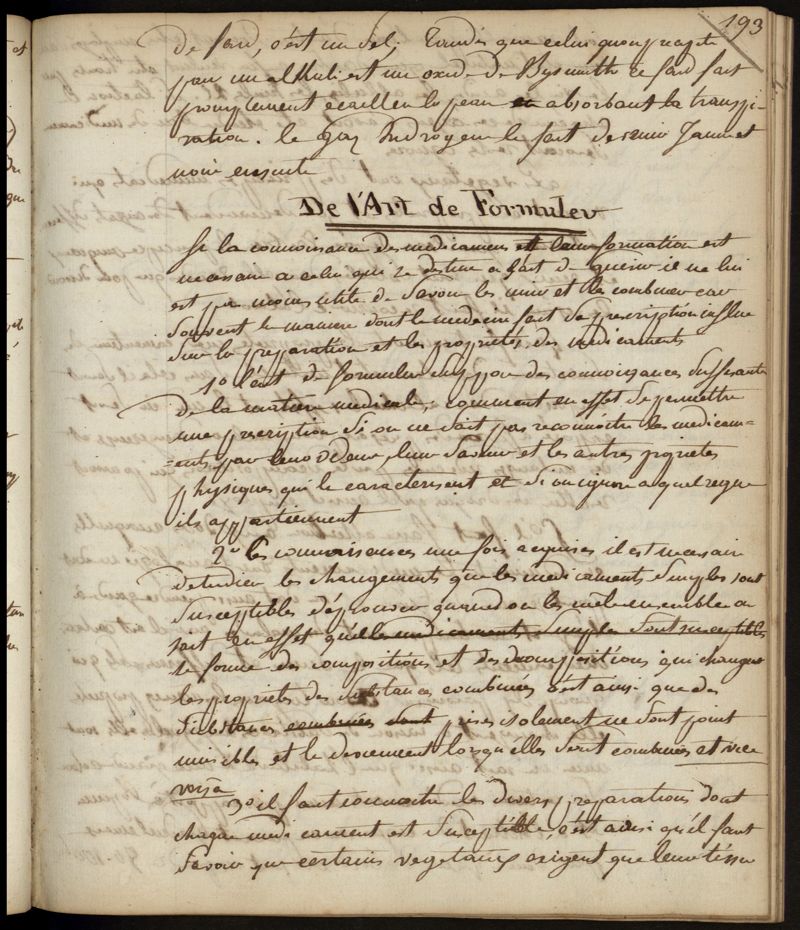 193
De fard, c'est un sel; Tandis que celui qu'on precipite
par un alkali est un oxide de Bysmuth ce fard fait
promptement ecailler la peau en absorbant la transpi-
ration. le Gaz hidrogene le fait devenir Jaune et
noir ensuite
De l'Art de Formuler
Si la connoissance des medicamens et leur formation est
necessaire a celui qui se destine a l'art de guerir il ne lui
est pas moins utile de savoir les unir et les combiner car
souvent la maniere dont le medecin fait sa prescription influe
sur la preparation et les proprietés des medicaments
1o l'art de formuler suppose des connoissances suffisantes
De la matiere medicale; comment en effet se permettre
une prescription si on ne sait pas reconnoitre les medicam=
=ents par leur odeur, leur saveur et les autres proprietes
physiques qui le caracterisent et si on ignore a quel regne
ils appartiennent
2o les connoissances une fois acquises il est necessaire
d'etudier les changements que les medicaments simples sont
susceptibles d'éprouver quand on les mêle ensemble on
sait en effet qu'elles medicaments simples sont susceptibles
se forme des compositions et des decompositions qui changent
les proprietes des substances combinées c'est ainsi que des
substances combinées sont prises isolement ne sont point
nuisibles et le deviennent lorsqu'elles sont combinées et vice
versa
3o il faut connaitre les divers preparations dont
chaque medicament est susceptible, c'est ainsi qu'il faut
savoir que certains vegetaux exigent que leur tissu